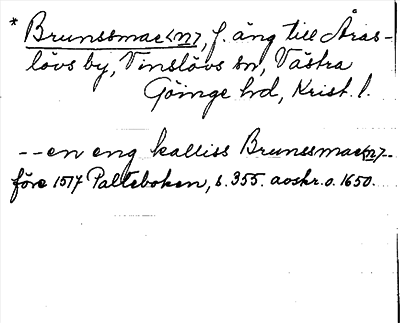 * Brunssmac<n>, f. äng till Åras-
lövs by, Vinslövs sn, Västra
Göinge hd, Krist. l.
--en eng kalliss Brunssmac<n>--
före 1517 Palteboken, s. 355. avskr. o. 1650.